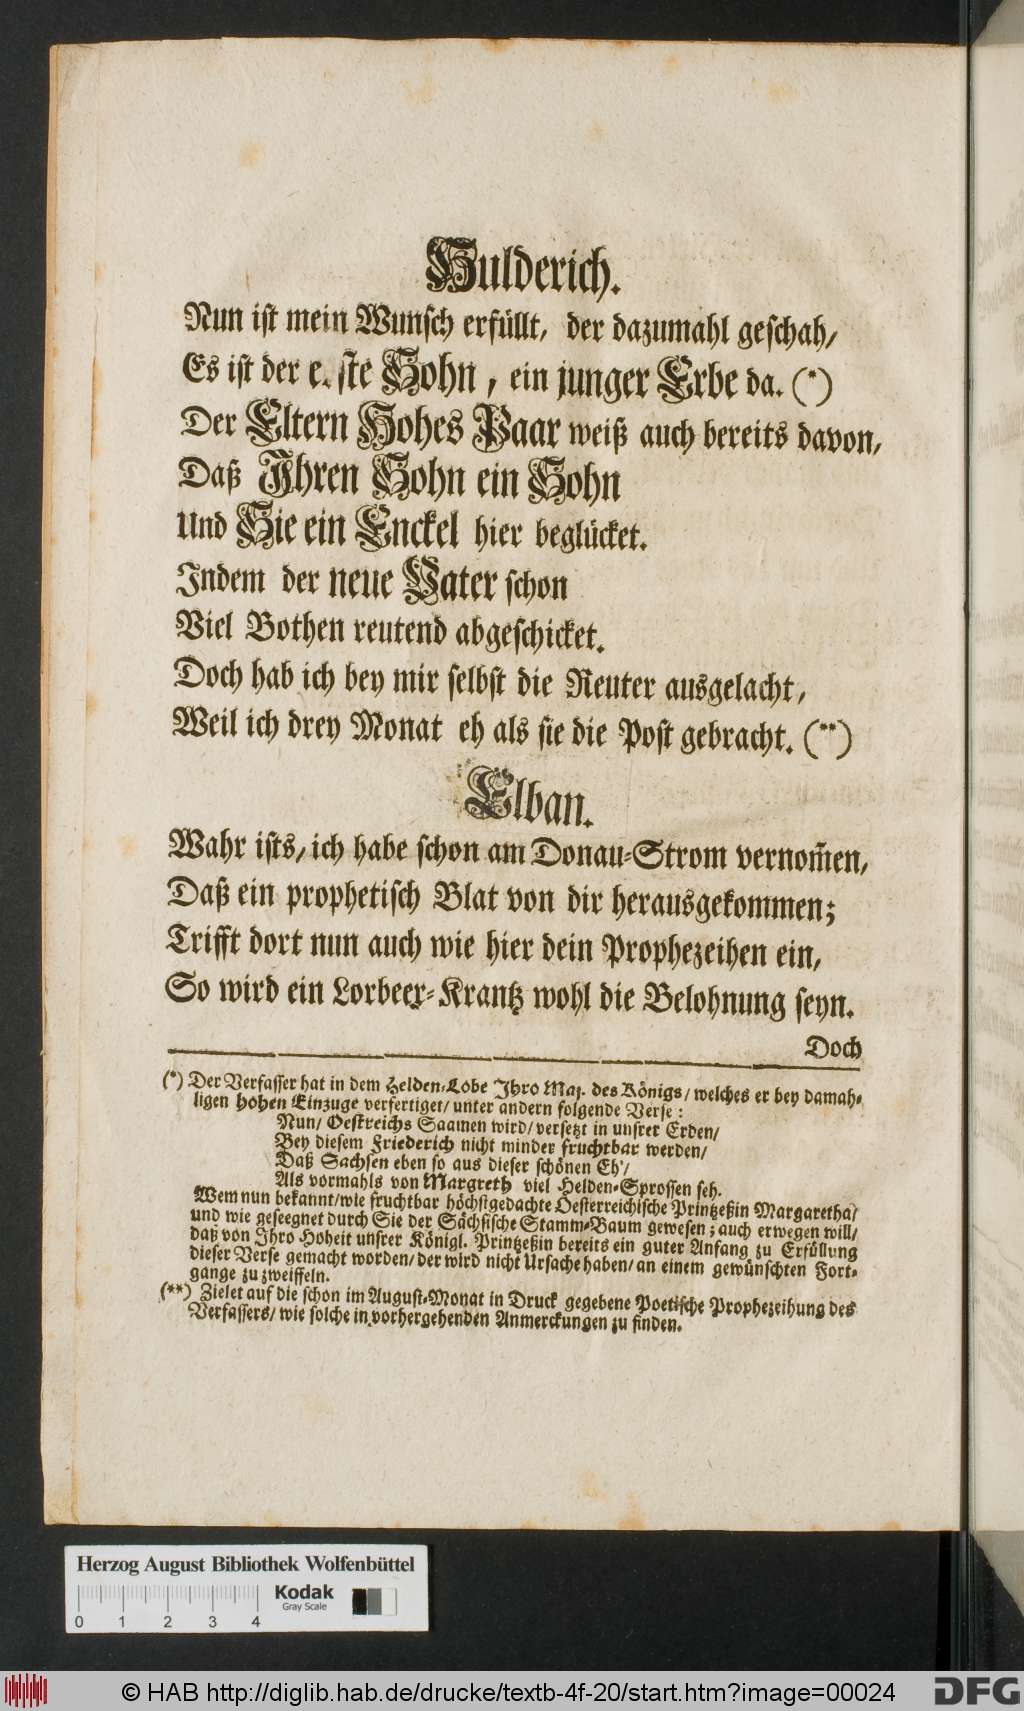 Hulderich.
Nun ist mein Wunsch erfüllt, der dazumahl geschah/
Es ist der erste Sohn, ein junger Erbe da. (*)
Der Eltern Hohes Paar weiß auch bereits davon,
Daß Ihren Sohn ein Sohn
Und Sie ein Enckel hier beglücket.
Indem der neue Vater schon
Viel Bothen reutend abgeschicket.
Doch hab ich bey mir selbst die Reuter ausgelacht,
Weil ich drey Monat eh als sie die Post gebracht. (**)
Elban.
Wahr ists/ ich habe schon am Donau-Strom vernom̃en,
Daß ein prophetisch Blat von dir herausgekommen;
Trifft dort nun auch wie hier dein Prophezeihen ein,
So wird ein Lorbeer-Krantz wohl die Belohnung seyn.
Doch
(*) Der Verfasser hat in dem Helden-Lobe Ihro Maj. des Königs/ welches er bey damah-
ligen hohen Einzuge verfertiget/ unter andern folgende Verse:
Nun/ Oestreichs Saamen wird/ versetzt in unsrer Erden/
Bey diesem Friederich nicht minder fruchtbar werden/
Daß Sachsen eben so aus dieser schönen Eh'/
Als vormahls von Margreth viel Helden-Sprossen seh.
Wem nun bekannt/ wie fruchtbar höchstgedachte Oesterreichische Printzeßin Margaretha/
und wie geseegnet durch Sie der Sächsische Stamm-Baum gewesen; auch erwegen will/
daß von Ihro Hoheit unsrer Königl. Printzeßin bereits ein guter Anfang zu Erfüllung
dieser Verse gemacht worden/ der wird nicht Ursache haben/ an einem gewünschten Fort-
gange zu zweiffeln.
(**) Zielet auf die schon im August-Monat in Druck gegebene Poetische Prophezeihung des
Verfassers/ wie solche in vorhergehenden Anmerckungen zu finden.
Herzog August Bibliothek Wolfenbüttel
Kodak
Gray Scale
0 1 2 3 4
© HAB http://diglib.hab.de/drucke/textb-4f-20/start.htm?image=00024
DFG